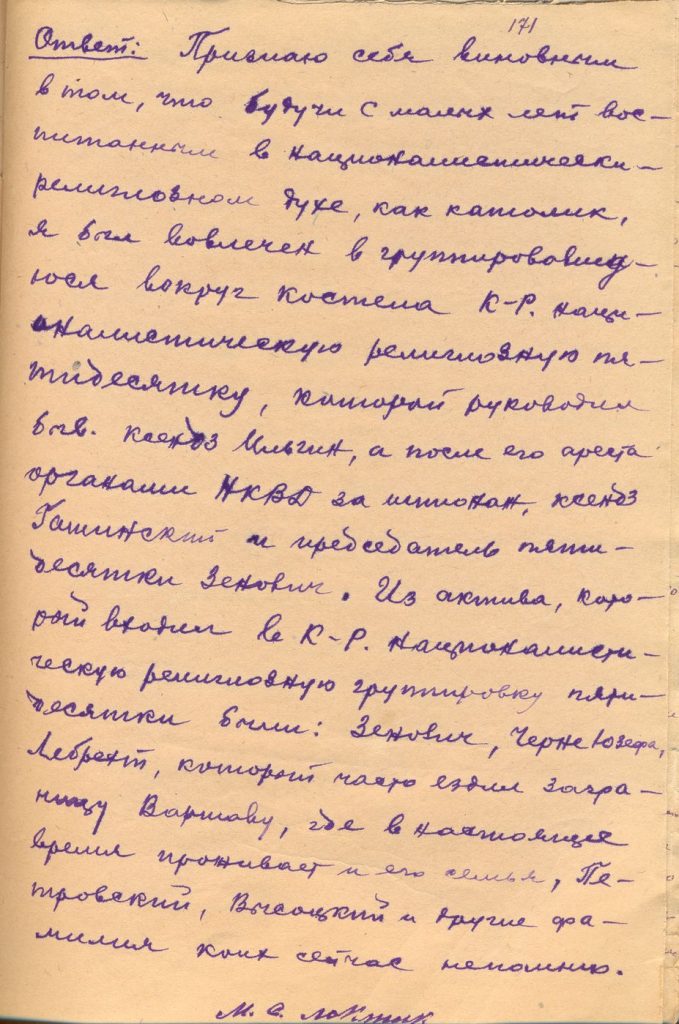 171
Ответ: Признаю себя виновным
в том, что будучи с малых лет вос-
питанным в националистически-
религиозном духе, как католик,
я был вовлечен в группировавшу-
юся вокруг костела К-Р. наци-
оналистическую религиозную пя-
тидесятку, которой руководил
быв. ксендз Ильгин, а после его ареста
органами НКВД за шпионаж, ксендз
и председатель пяти-
десятки Зенович. Из актива, кото-
рый входил в К-Р. националисти-
ческую религиозную группировку пяти-
десятки были: Зенович, Черне Юзефа,
Лебрехт, который часто ездил загра-
ницу Варшаву, где в настоящее
время проживает и его семья, Пе-
тровский, Высоцкий и другие фа-
милия коих сейчас непомню.
М. С.